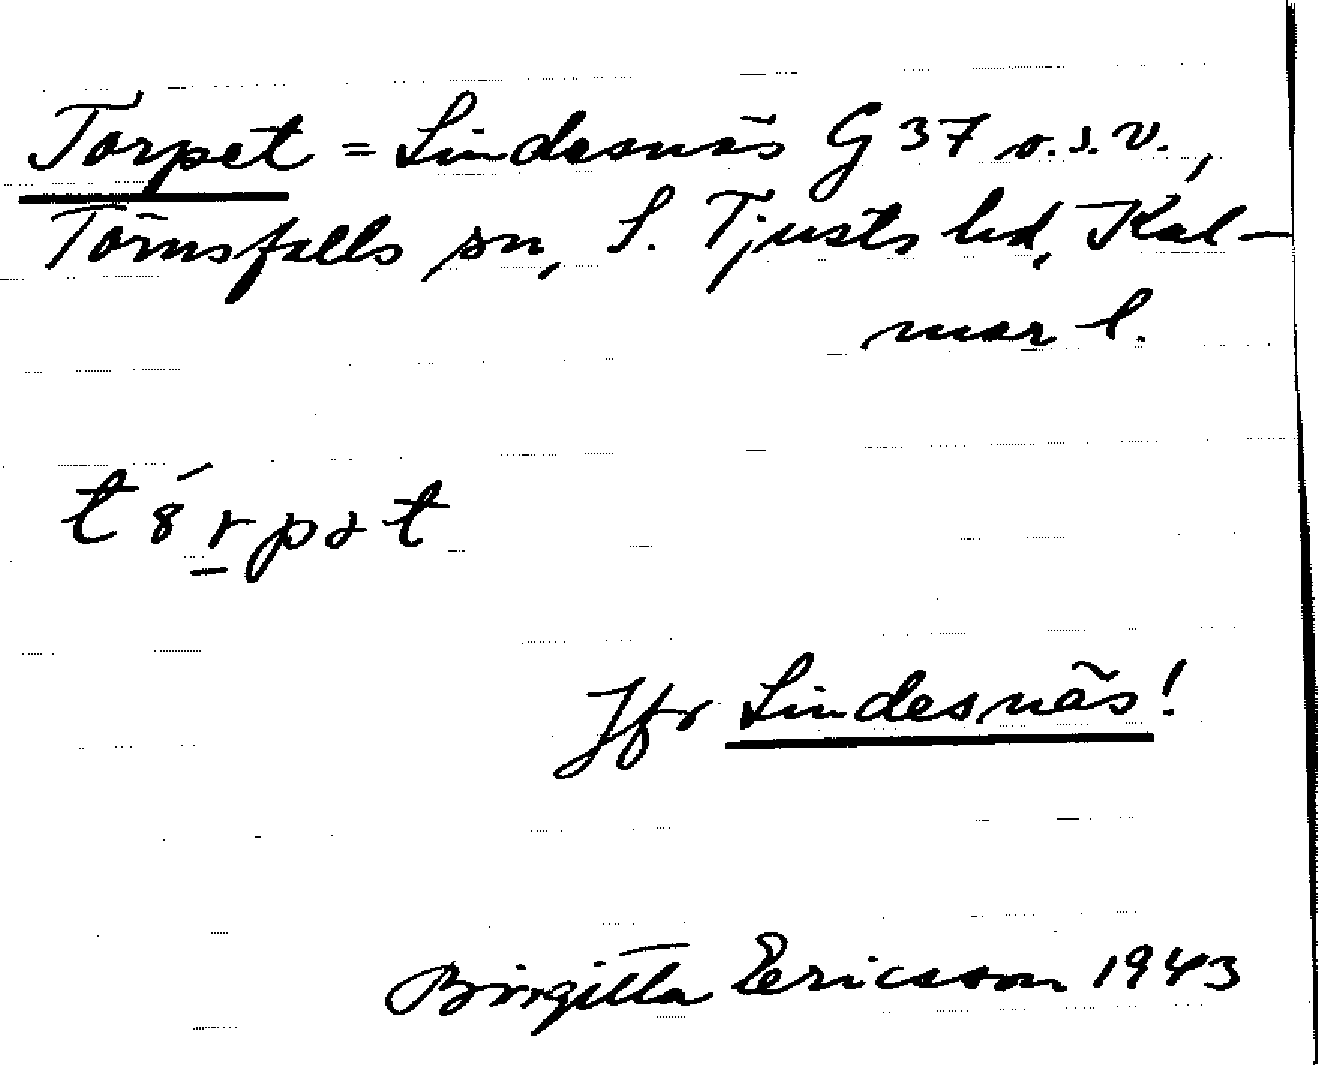 Torpet = Lindesnäs G 37 o.s.v.,
Törnsfalls sn, S. Tjusts hd, Kal-
mar l.
Jfr Lindesnäs!
Birgitta Ericsson 1943